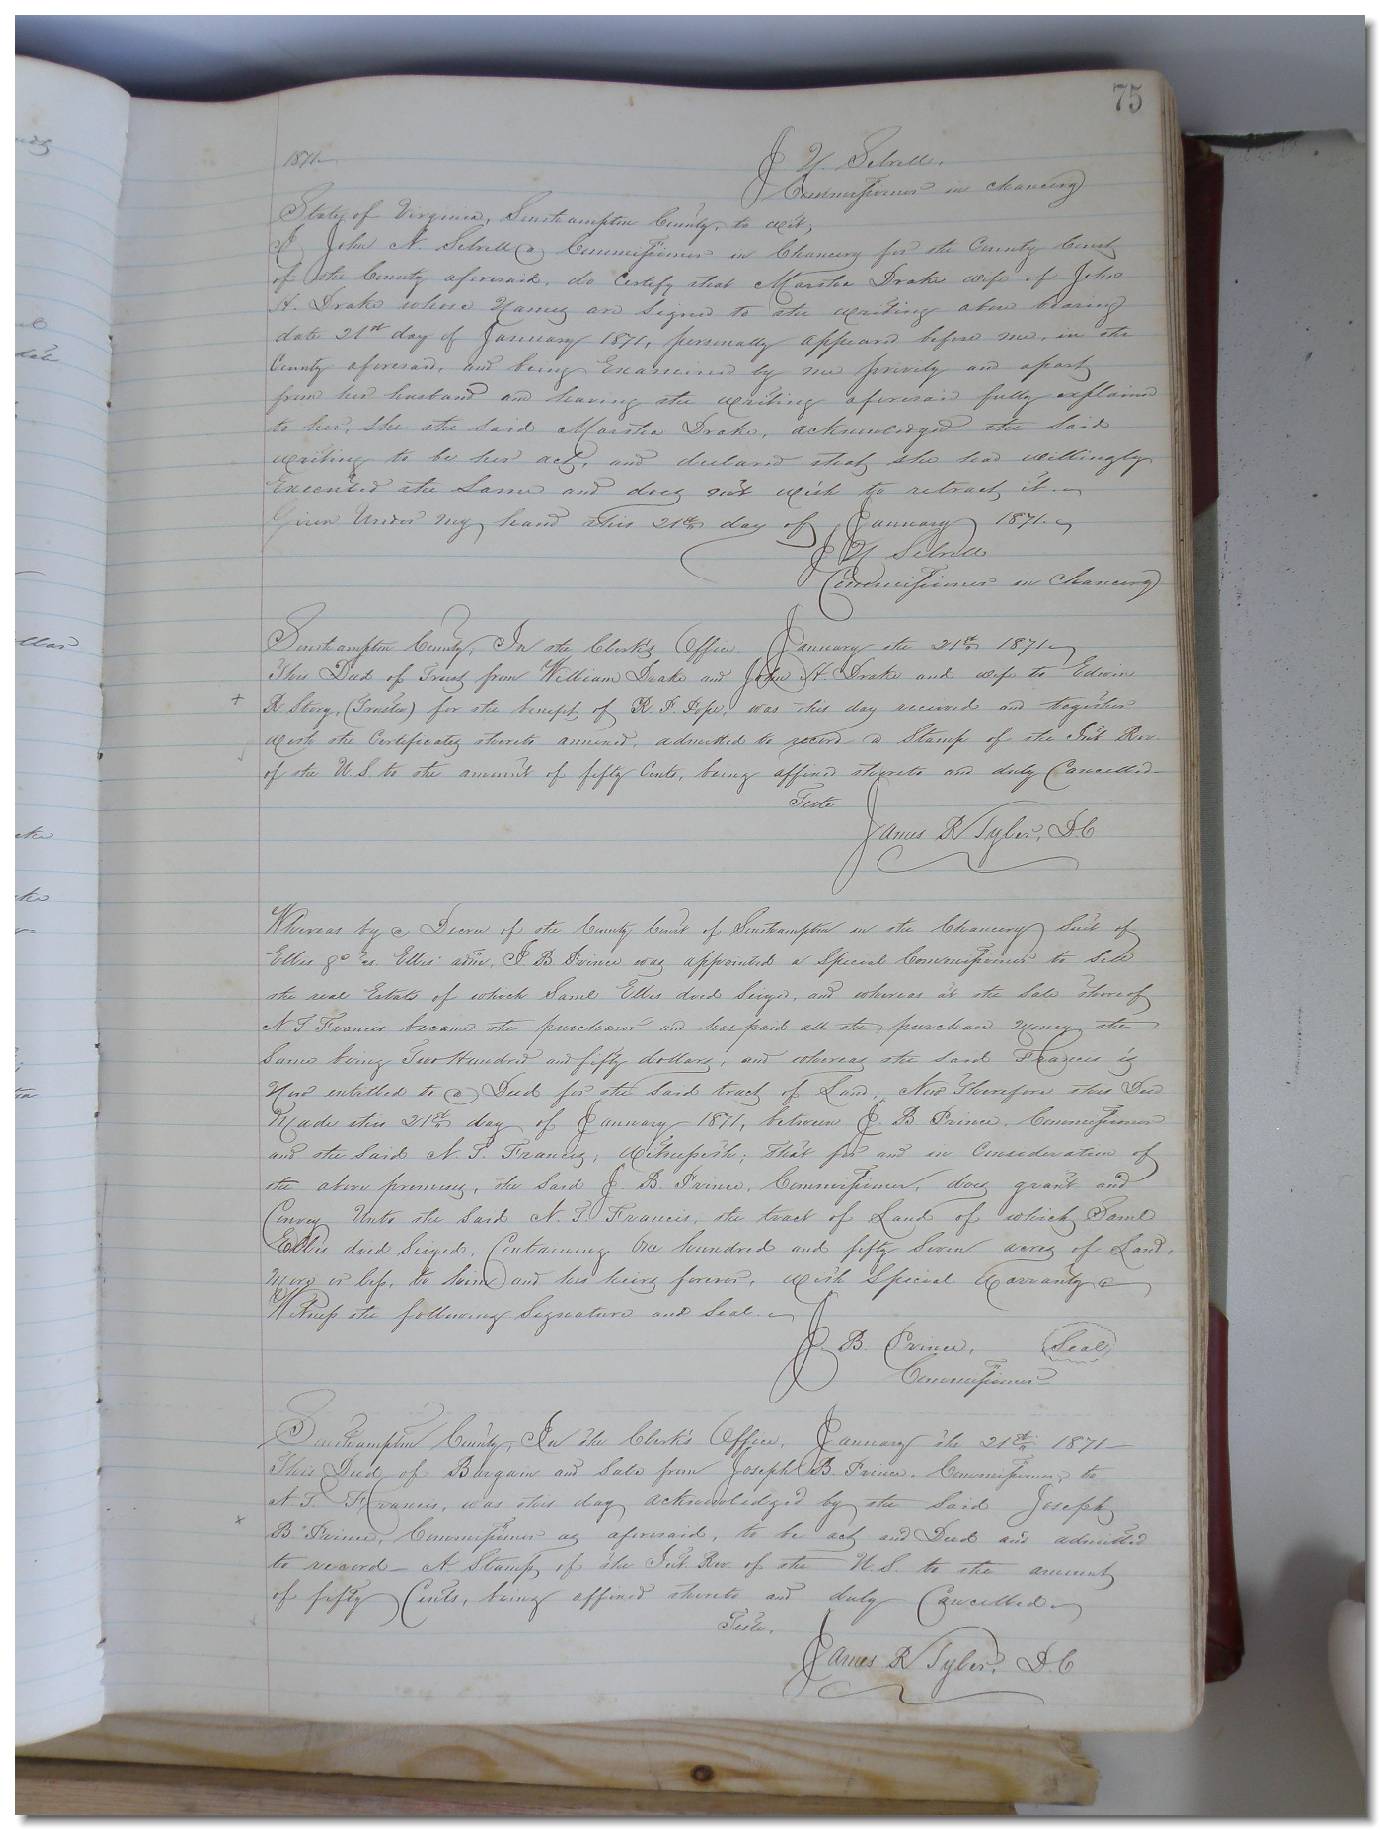 75
1871
J N. Sebrell.
Commissioner in chancery
State of Virginia, Southampton County, to wit;
I John N. Sebrell a Commissioner in Chancery for the County Court
of the County aforesaid, do Certify that Martha Drake wife of John
H. Drake whose Names are Signed to the writing above bearing
date 21st day of January 1871, personally appeared before me, in the
County aforesaid, and being Examined by me privily and apart
from her husband and having the writing aforesaid fully explained
to her, She the Said Martha Drake, acknowledged the Said
writing to be her act, and declared that she had willingly
Executed the Same and does not wish to retract it.
Given Under My hand this 21st day of January 1871.
J N Sebrell
Commissioner in Chancery
Southampton County, In the Clerk's Office January the 21st 1871
This Deed of Trust from William Drake and John H Drake and wife to Edwin
R Story, (Trustee) for the benefit of R. P. Pope, was this day received and together
with the Certificates thereto annexed, admitted to record a Stamp of the Int Rev.
of the U.S. to the amount of fifty Cents, being affixed thereto and duly Cancelled
Teste
James R Tyler, D.C
Whereas by a Decree of the County Court of Southampton in the Chancery Suit of
Ellis &c vs. Ellis' admr, J B Prince was appointed a Special Commissioner to Sell
the real Estate of which Saml Ellis died Siezed, and whereas at the Sale thereof
N T Francis became the purchaser and has paid all the purchase Money the
Same being Two Hundred and fifty dollars, and whereas the said Francis is
Now entitled to a Deed for the Said tract of Land, Now Therefore this Deed
Made this 21st day of January 1871, between J. B. Prince, Commissioner
and the Said N. T. Francis, Witnesseth; That for and in Consideration of
the above premises, the Said J. B. Prince, Commissioner, does grant and
Convey Unto the Said N. T. Francis, the tract of Land of which Saml
Ellis died Siezed, Containing One hundred and fifty Seven acres of Land,
More or less, to him and his heirs forever, with Special Warranty
Witness the following Signature and Seal.
J. B. Prince, Seal
Commissioner
Southampton County, In the Clerk's Office, January the 21st 1871
This Deed of Bargain and Sale from Joseph B. Prince, Commissioner to
N. T. Francis, was this day acknowledged by the Said Joseph
B Prince, Commissioner as aforesaid, to be act and Deed and admitted
to record A Stamp of the Int. Rev. of the U.S. to the amount
of fifty Cents, being affixed thereto and duly Cancelled
Teste,
James R Tyler, D.C